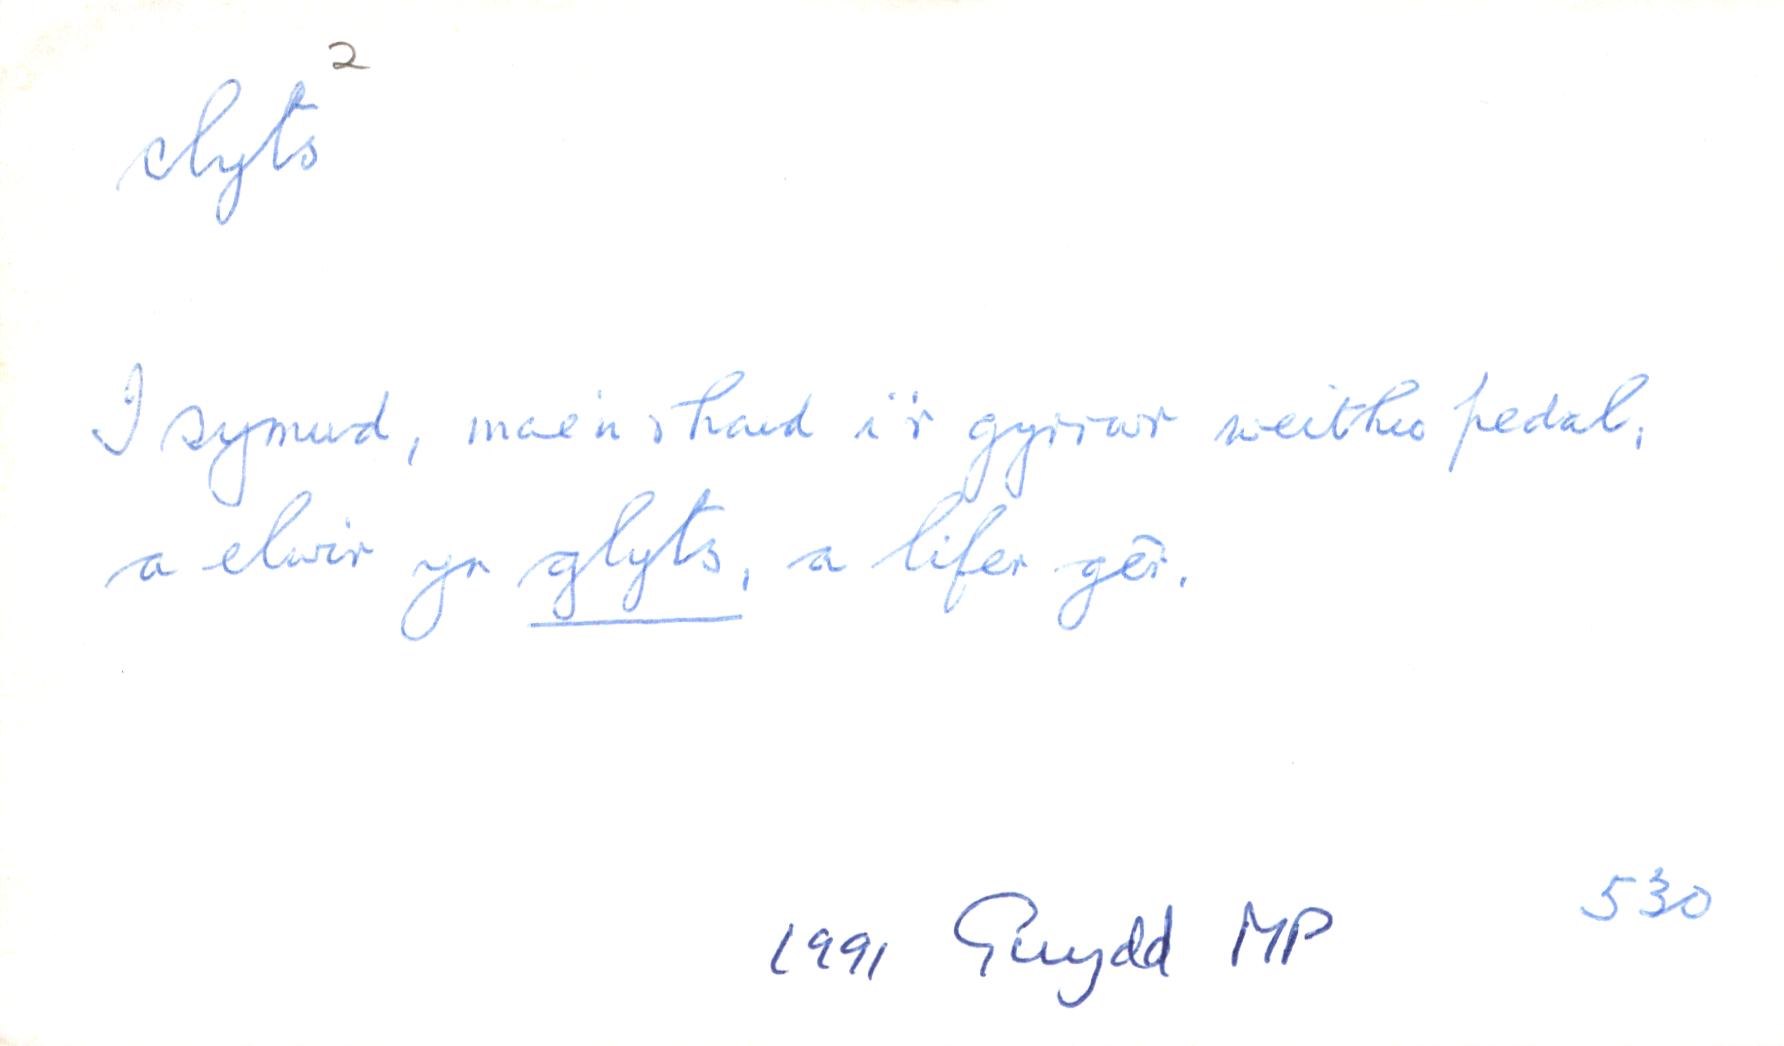 clyts²
I symud, mae'n rhaid i'r gyrrwr weithio pedal,
a elwir yn glyts, a lifer gêr.
530
1991 Gwydd MP